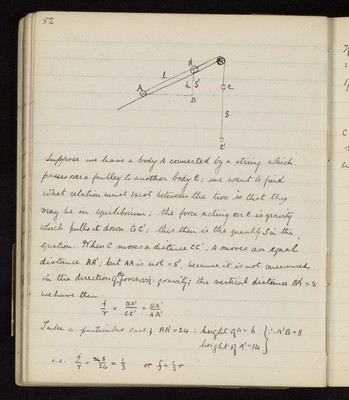 52
A L A' h S' B C S C'
Suppose we have a body A connected by a string which
passes over a pulley to another body C; we want to find
what relation must exist between the two so that they
may be in equilibrium; the force acting on C is gravity
which pulls it down to C', this then is the quantity S in the
equation. When C moves a distance CC', A moves an equal
distance AA'; but AA' is not = S', because it is not measured
in the direction of the force, viz: gravity; the vertical distance BA' = S'
we have then
f/r = BA'/CC' = BA'/AA'
Take a particular case; AA' = 24 : height of A = 6 } ∴ A'B = 8
height of A' = 14
i.e. f/r = 8/24 = 1/3 or f = 1/3 r